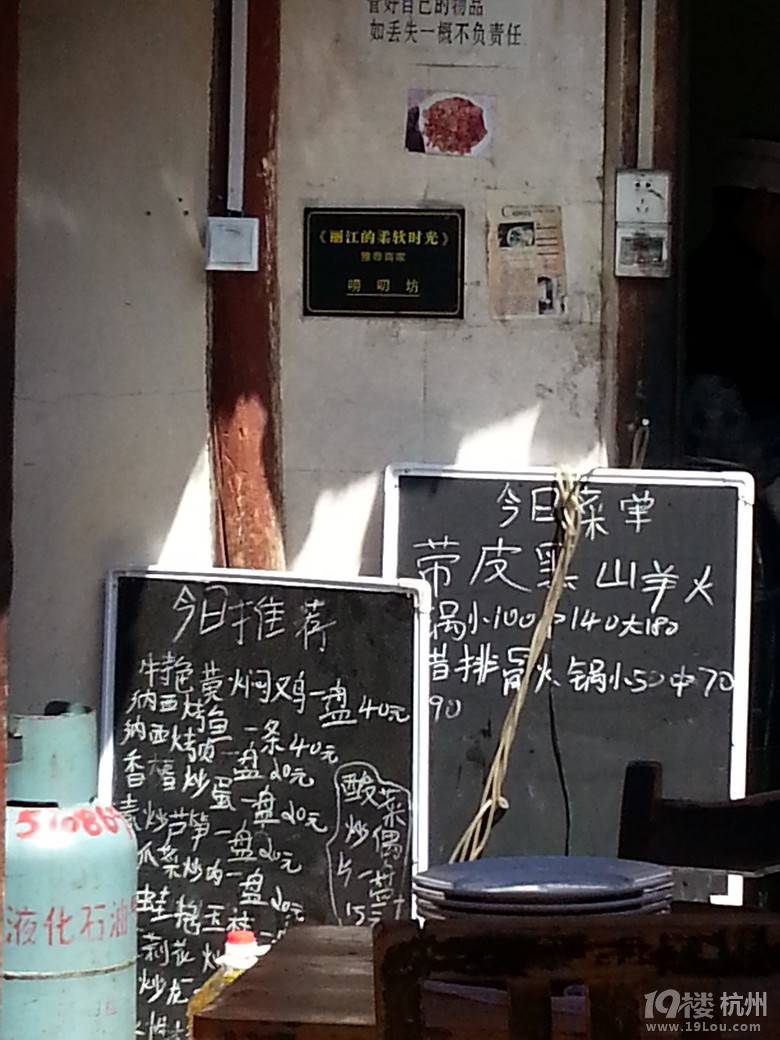 管好自己的物品
如丢失一概不负责任
《丽江的柔软时光》
推荐商家
唠叨坊
今日菜单
带皮黑山羊火
锅小100中140大180
腊排骨火锅小50中70
90
今日推荐
特色黄焖鸡一盘40元
纳西烤鱼一条40元
纳西烤肉一盘20元
香椿炒蛋一盘20元
素炒芦笋一盘20元
瓜菜炒肉一盘20元
酸菜
炒
一盘
15元
茉莉花炒
炒
液化石油
19楼 杭州
www.19Lou.com